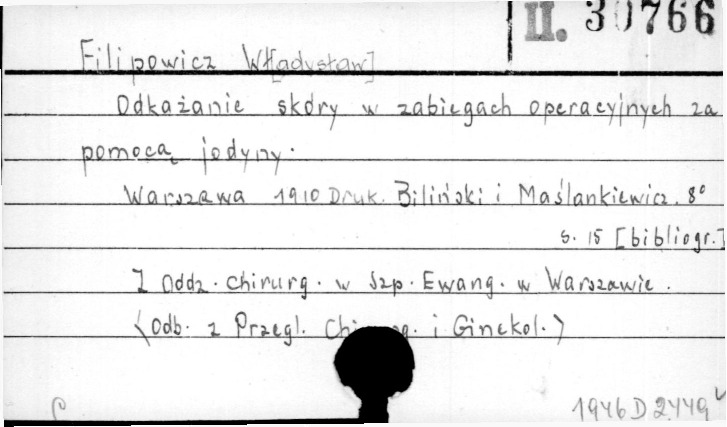 II. 30766
Filipowicz Wł[adysław]
Odkażanie skóry w zabiegach operacyjnych za
pomocą jodyny.
Warszawa 1910 Druk. Biliński i Maślankiewicz. 8°
s. 15 [bibliogr.]
Z Oddz. chirurg. w Szp. Ewang. w Warszawie.
(Odb. z Przegl. i Ginekol.)
1946 D 2449